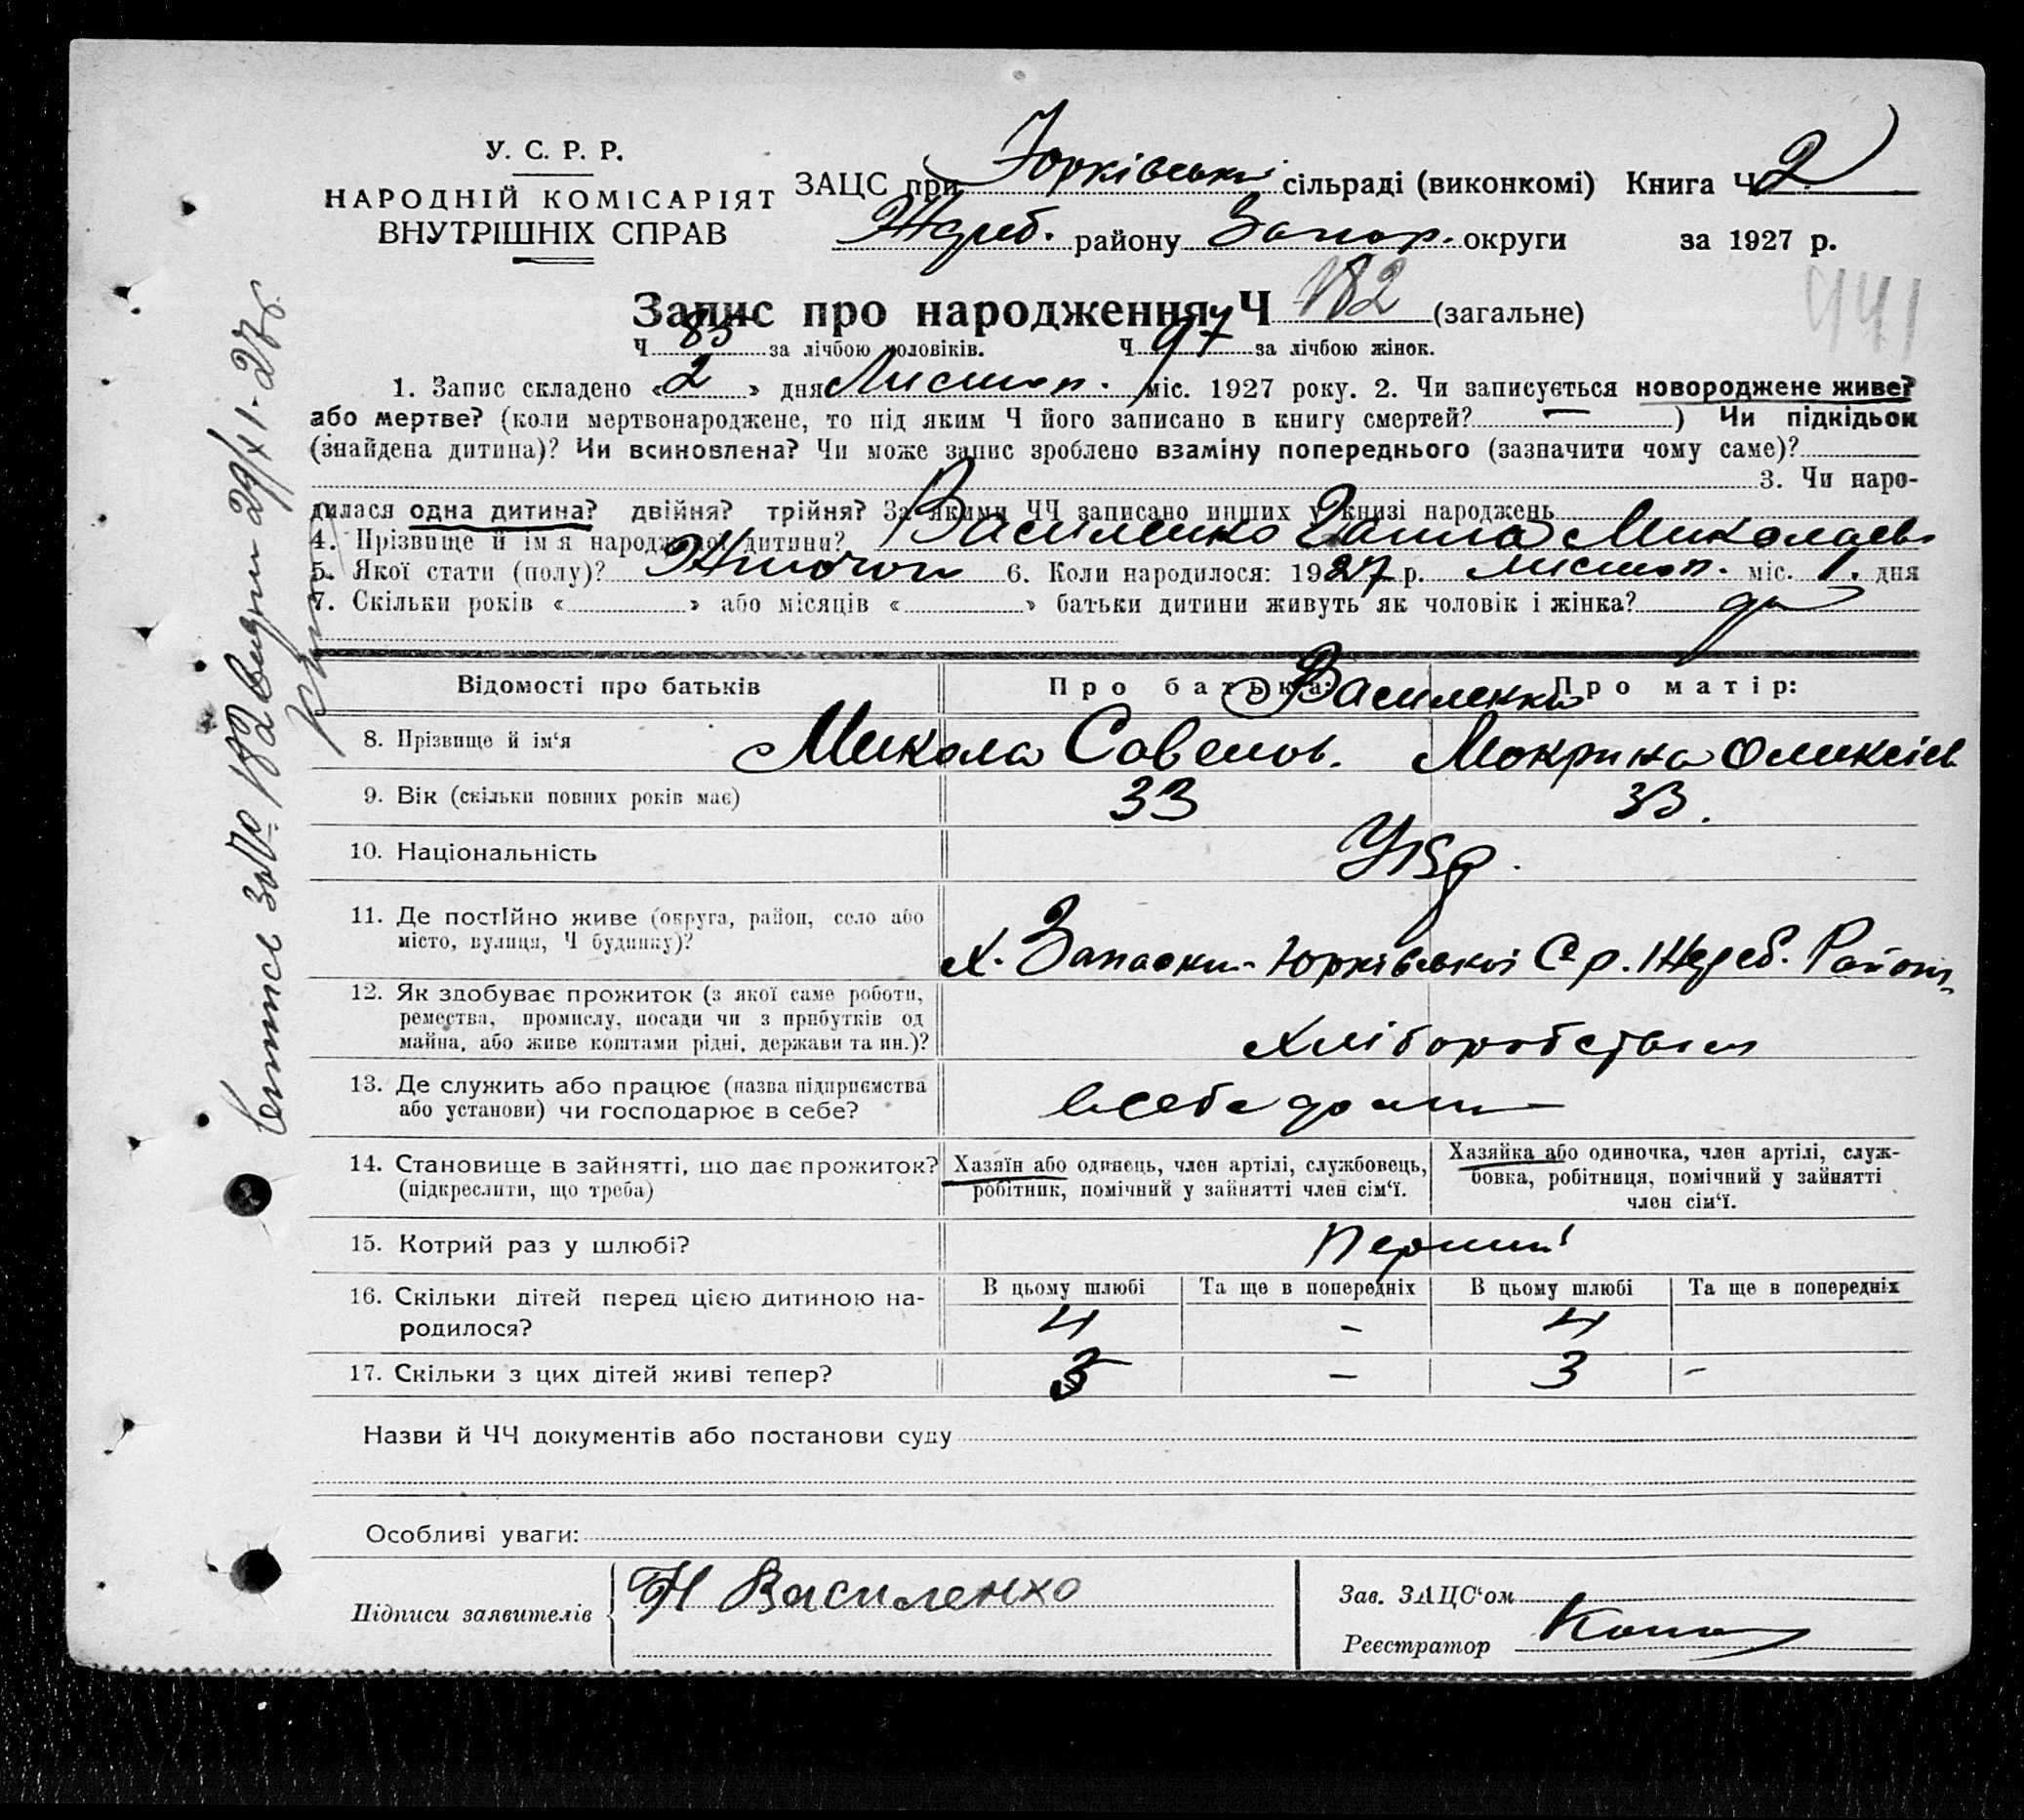 У. С. Р. Р.
НАРОДНІЙ КОМІСАРІЯТ
ВНУТРІШНІХ СПРАВ
ЗАЦС при Юрківськи сільраді (виконкомі) Книга Ч 2
Жереб. району Запор. округи за 1927 р.
Запис про народження Ч 182 (загальне)
441
Ч 85 за лічбою чоловіків. Ч 97 за лічбою жінок.
1. Запис складено «2» дня Листоп. міс. 1927 року. 2. Чи записується новороджене живе?
або мертве? (коли мертвонароджене, то під яким Ч його записано в книгу смертей? — ) Чи підкідьок
(знайдена дитина)? Чи всиновлена? Чи може запис зроблено взаміну попереднього (зазначити чому саме)?
3. Чи наро-
дилася одна дитина? двійня? трійня? За якими ЧЧ записано инших у книзі народжень
4. Прізвище й ім'я народженої дитини? Василенко Ганна Миколаев
5. Якої стати (полу)? Жіночої 6. Коли народилося: 1927 р. листоп. міс. 1. дня
7. Скільки років « » або місяців « » батьки дитини живуть як чоловік і жінка? да
Відомості про батьків Про батька: Про матір:
Василенки
8. Прізвище й ім'я Микола Савелов. Мокрина Олексіев
9. Вік (скільки повних років має) 33 33.
10. Національність Укр.
11. Де постійно живе (округа, район, село або
місто, вулиця, Ч будинку)?
х. Запаски Юрківської С р. Жереб. Району
12. Як здобуває прожиток (з якої саме роботи,
ремества, промислу, посади чи з прибутків од
майна, або живе коштами рідні, держави та ин.)?
Хліборобством
13. Де служить або працює (назва підприємства
або установи) чи господарює в себе?
в себе дома
14. Становище в зайнятті, що дає прожиток?
(підкреслити, що треба)
Хазяїн або одинець, член артілі, службовець,
робітник, помічний у зайнятті член сім'ї.
Хазяйка або одиночка, член артілі, служ-
бовка, робітниця, помічний у зайнятті
член сім'ї.
15. Котрий раз у шлюбі? перший
16. Скільки дітей перед цією дитиною на-
родилося?
В цьому шлюбі Та ще в попередніх В цьому шлюбі Та ще в попередніх
4 - 4
17. Скільки з цих дітей живі тепер? 3 - 3 -
Назви й ЧЧ документів або постанови суду
Особливі уваги:
Підписи заявителів Н Василенко
Зав. ЗАЦС'ом
Реєстратор
Витпс за № 182 видан 29/XI-27 р.